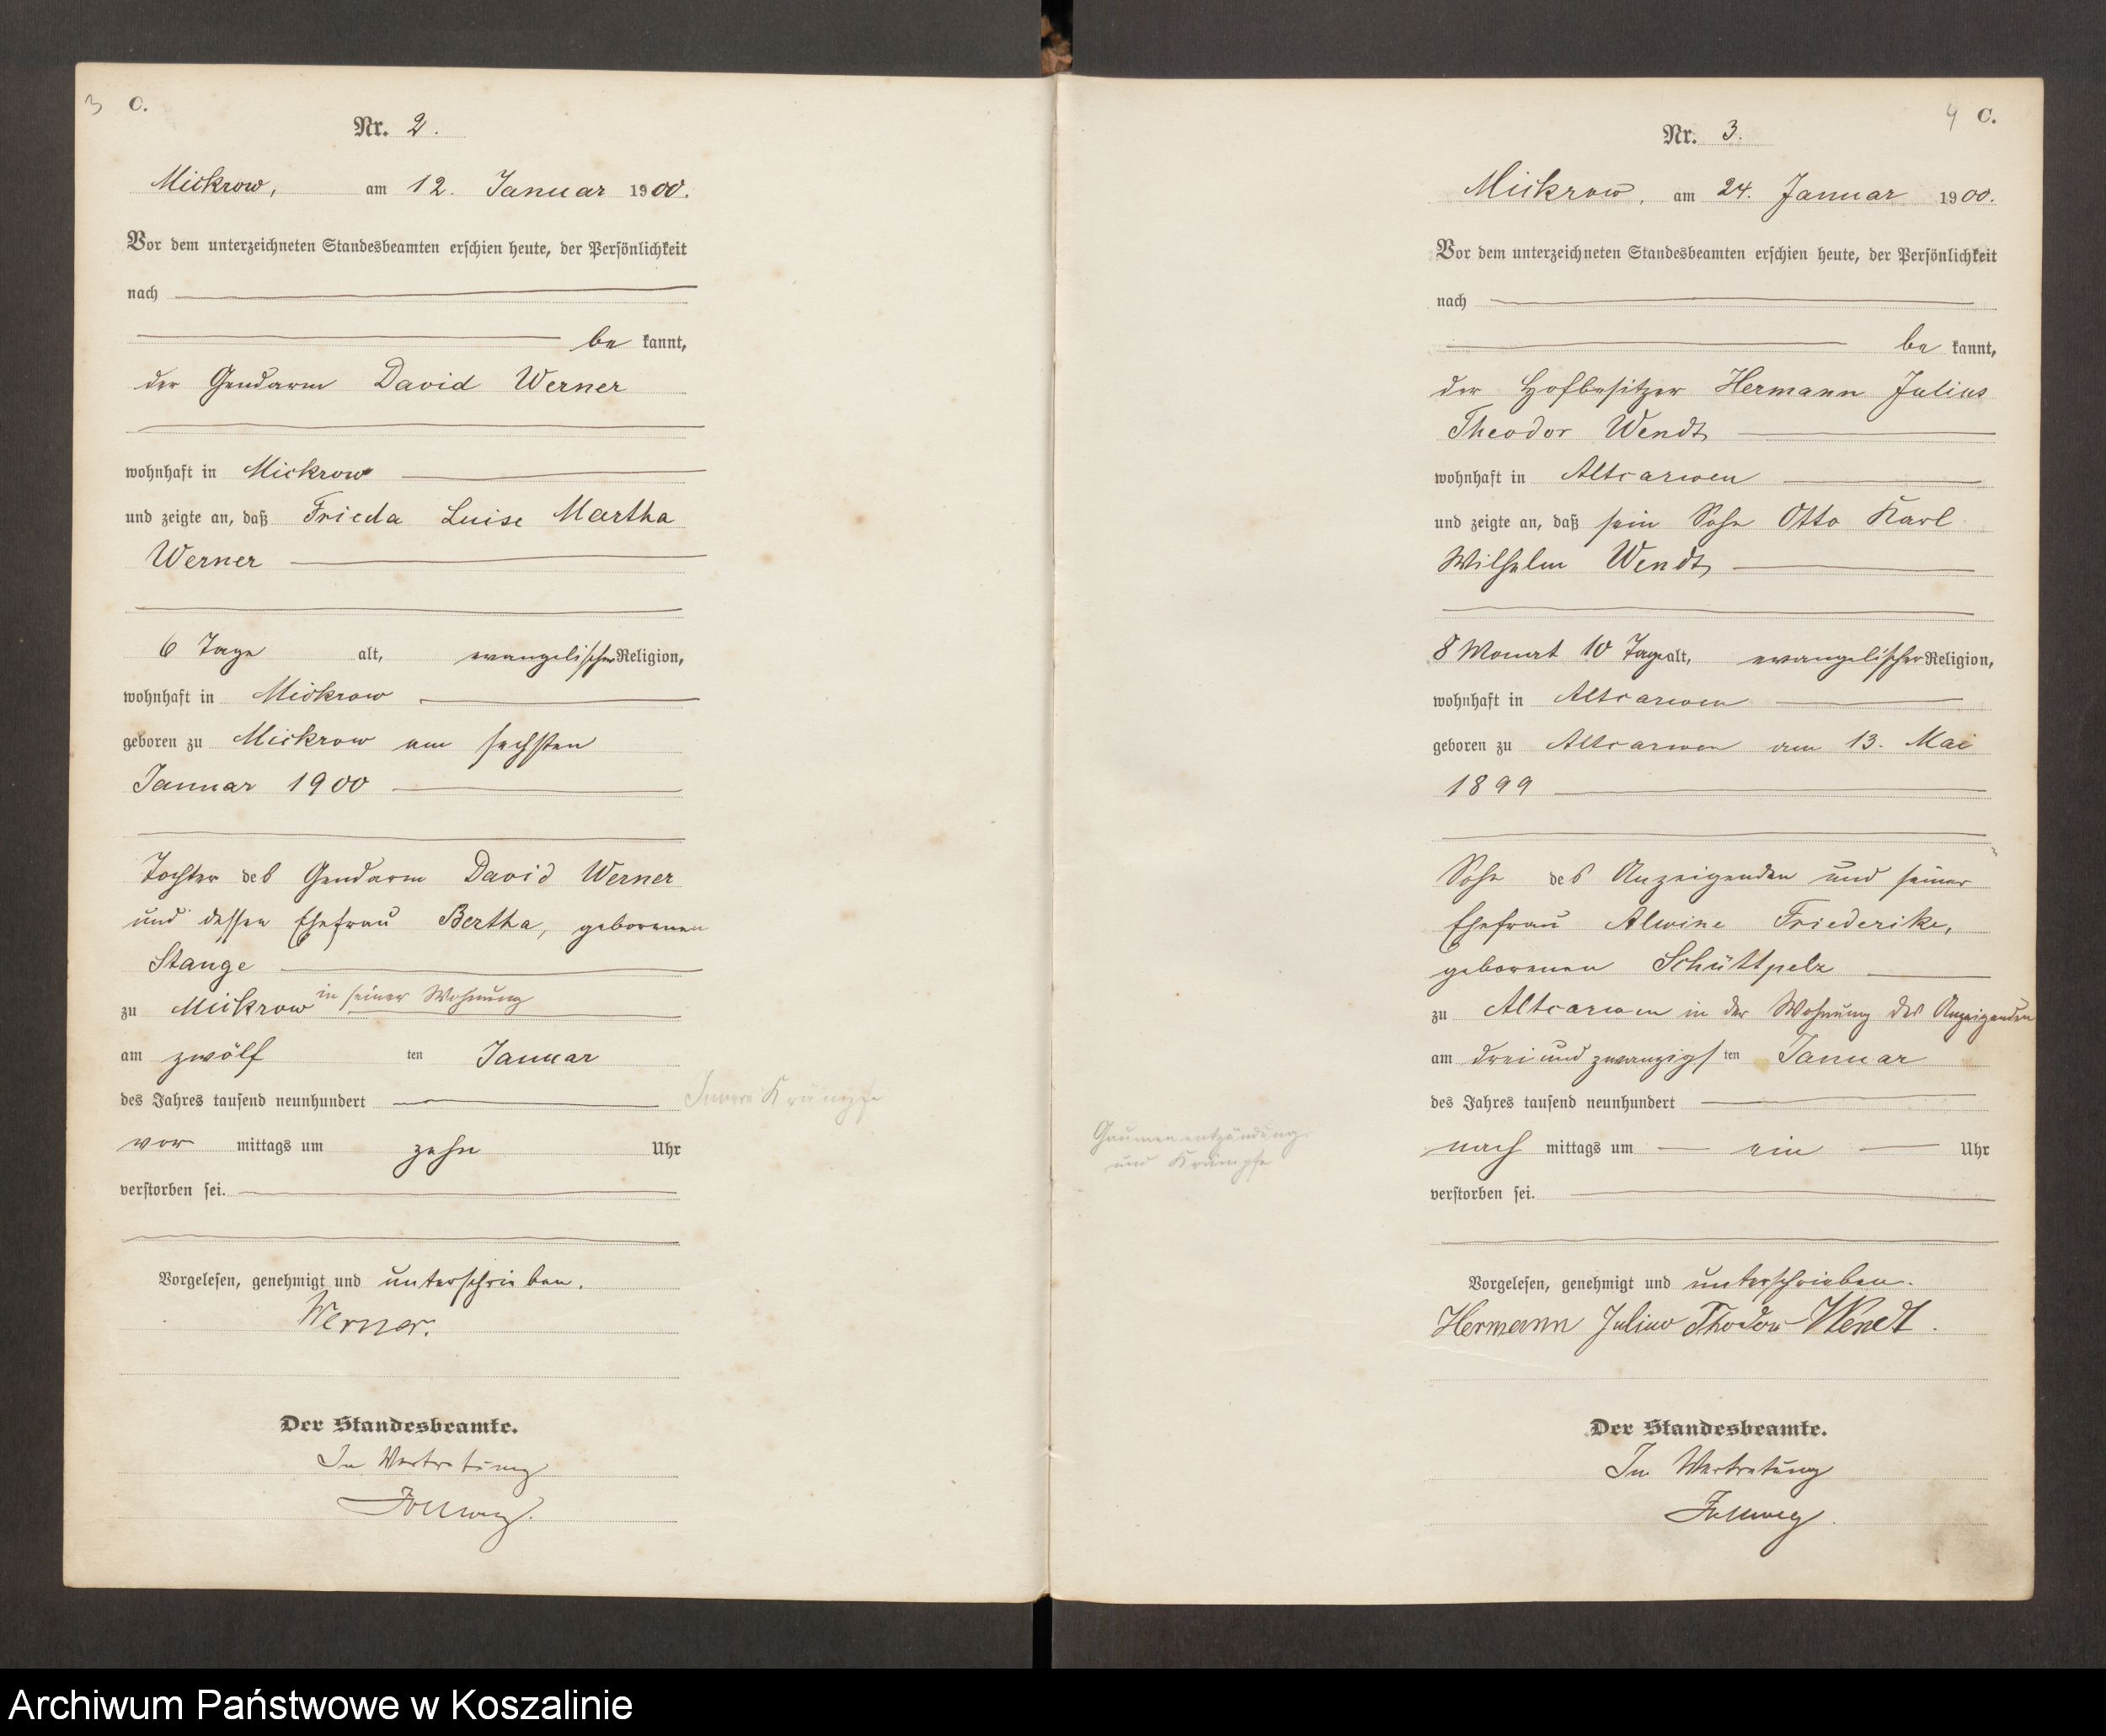 3 C.
Nr. 2.
Mickrow, am 12. Januar 1900.
Vor dem unterzeichneten Standesbeamten erschien heute, der Persönlichkeit
nach
be kannt,
der Gendarm David Werner
wohnhaft in Mickrow
und zeigte an, daß Frieda Luise Martha
Werner
6 Tage alt, evangelischer Religion,
wohnhaft in Mickrow
geboren zu Mickrow am sechsten
Januar 1900
Tochter des Gendarm David Werner
und dessen Ehefrau Bertha, geborenen
Stange
zu Mickrow in seiner Wohnung
am zwölf ten Januar
des Jahres tausend neunhundert
Innere Krämpfe
vor mittags um zehn Uhr
verstorben sei.
Vorgelesen, genehmigt und unterschrieben.
Werner.
Der Standesbeamte.
In Vertretung
4 C.
Nr. 3.
Mickrow, am 24. Januar 1900.
Vor dem unterzeichneten Standesbeamten erschien heute, der Persönlichkeit
nach
be kannt,
der Hofbesitzer Hermann Julius
Theodor Wendt
wohnhaft in Altcarwen
und zeigte an, daß sein Sohn Otto Karl
Wilhelm Wendt
8 Monat 10 Tage alt, evangelischer Religion,
wohnhaft in Altcarwen
geboren zu Altcarwen am 13. Mai
1899
Sohn des Anzeigenden und seiner
Ehefrau Alwine Friederike,
geborenen Schüttpelz
zu Altcarwen in der Wohnung des Anzeigenden
am drei und zwanzigs ten Januar
des Jahres tausend neunhundert
Gaumenentzündung
und Krämpfe
nach mittags um ein Uhr
verstorben sei.
Vorgelesen, genehmigt und unterschrieben.
Hermann Julius Theodor Wendt.
Der Standesbeamte.
In Vertretung
Archiwum Państwowe w Koszalinie